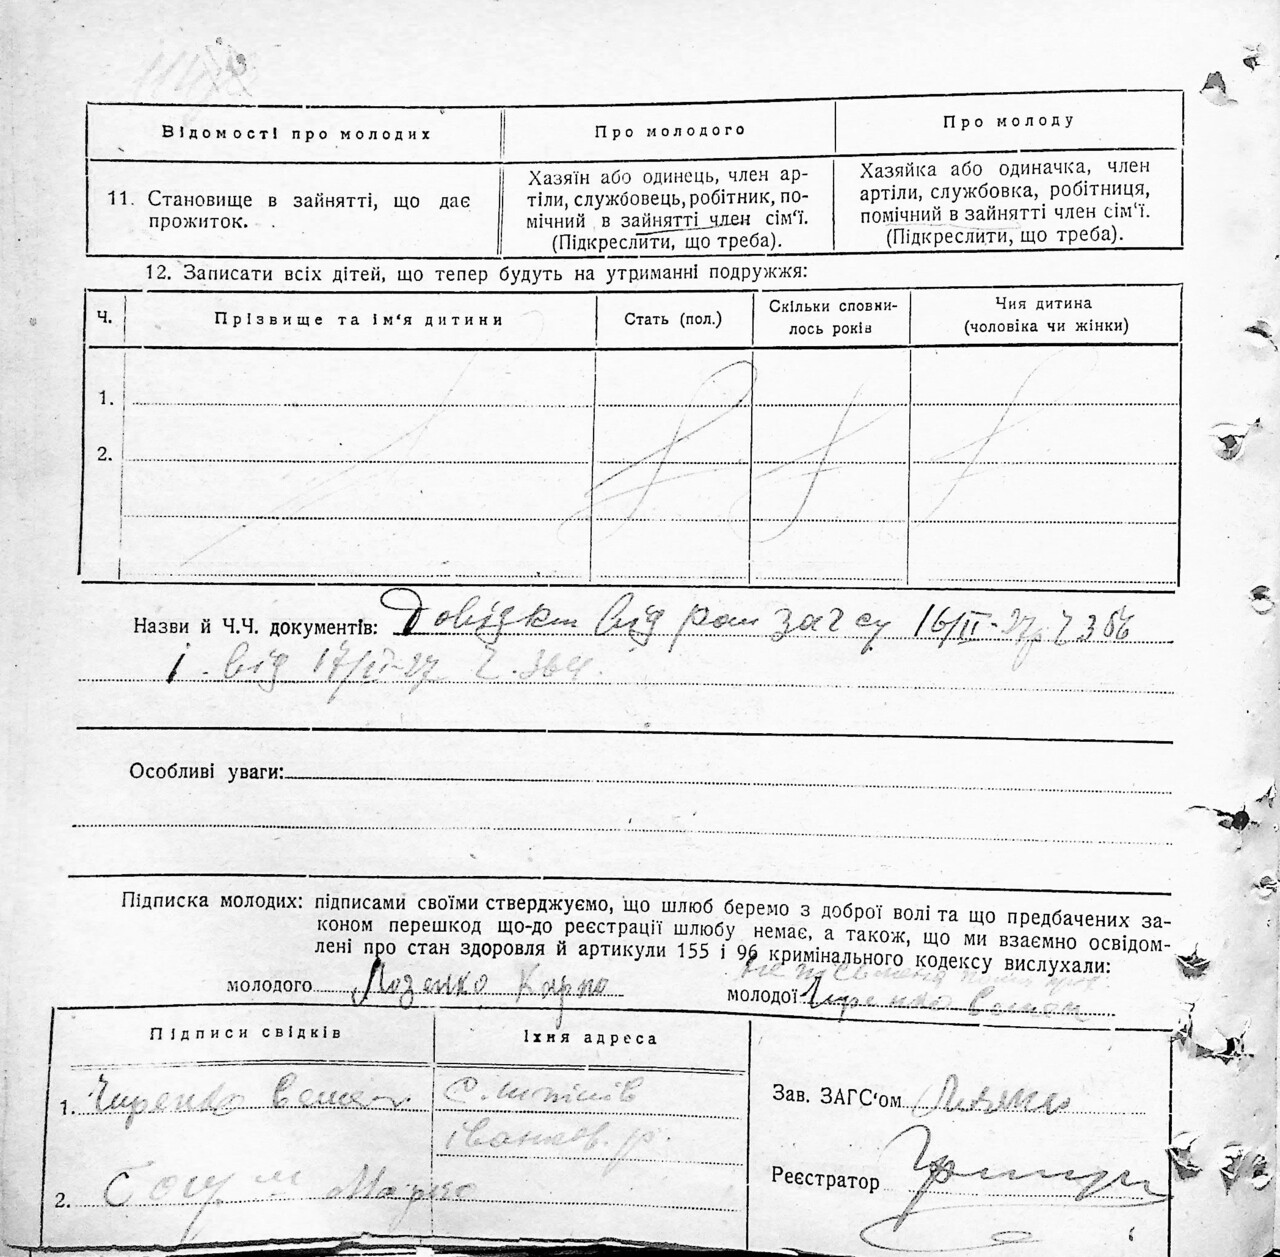 Відомості про молодих
Про молодого
Про молоду
11. Становище в зайнятті, що дає
прожиток.
Хазяїн або одинець, член ар-
тіли, службовець, робітник, по-
мічний в зайнятті член сім'ї.
(Підкреслити, що треба).
Хазяйка або одиначка, член
артіли, службовка, робітниця,
помічний в зайнятті член сім'ї.
(Підкреслити, що треба).
12. Записати всіх дітей, що тепер будуть на утриманні подружжя:
Ч.
Прізвище та ім'я дитини
Стать (пол.)
Скільки сповни-
лось років
Чия дитина
(чоловіка чи жінки)
1.
2.
Назви й Ч.Ч. документів: Довідки від загсу 16/II-27р Ч 366
і від 17/II-27 Ч. 364.
Особливі уваги:
Підписка молодих: підписами своїми стверджуємо, що шлюб беремо з доброї волі та що предбачених за-
коном перешкод що-до реєстрації шлюбу немає, а також, що ми взаємно освідом-
лені про стан здоровля й артикули 155 і 96 кримінального кодексу вислухали:
молодого Лозенко Карпо
молодої
Підписи свідків
Їхня адреса
1.
іванков. р.
2. Марко
Зав. ЗАГС'ом
Реєстратор